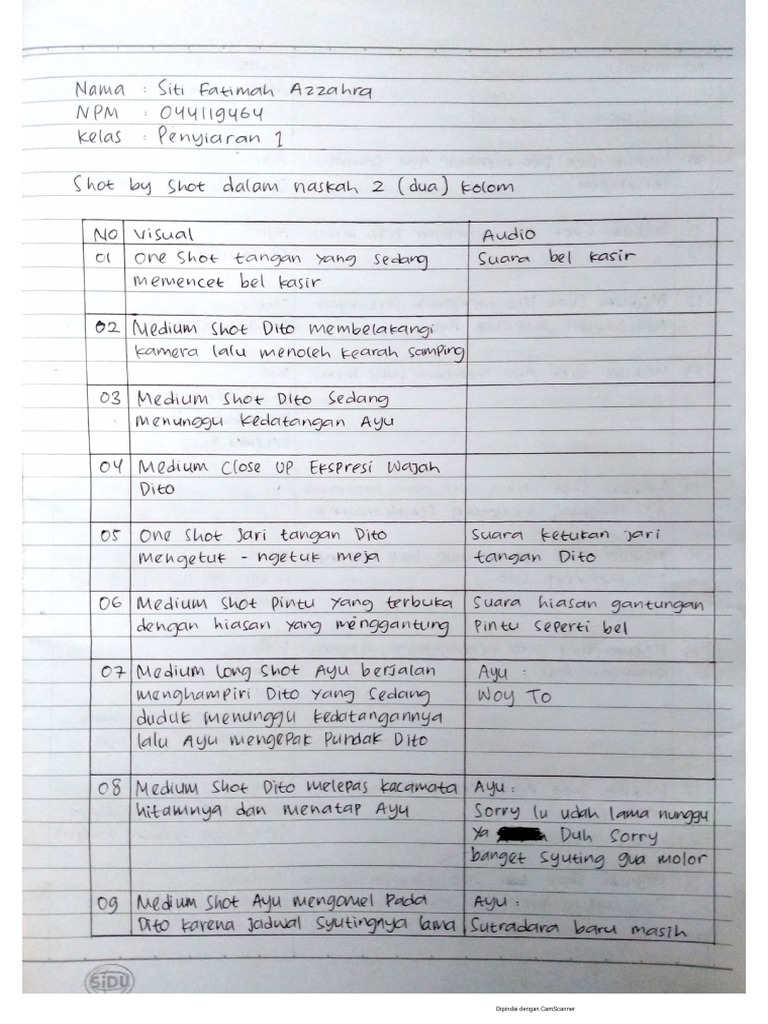 Nama : Siti Fatimah Azzahra
NPM : 044119464
Kelas : Penyiaran 1
Shot by Shot dalam naskah 2 (dua) kolom
NO Visual Audio
01 One Shot tangan yang sedang Suara bel kasir
memencet bel kasir
02 Medium Shot Dito membelakangi
kamera lalu menoleh kearah samping
03 Medium Shot Dito Sedang
menunggu Kedatangan Ayu
04 Medium Close Up Ekspresi Wajah
Dito
05 One Shot jari tangan Dito Suara ketukan jari
mengetuk - ngetuk meja tangan Dito
06 Medium Shot pintu yang terbuka Suara hiasan gantungan
dengan hiasan yang menggantung pintu seperti bel
07 Medium long Shot Ayu berjalan Ayu :
menghampiri Dito yang sedang WOY TO
duduk menunggu kedatangannya
lalu Ayu mengepak Pundak Dito
08 Medium Shot Dito melepas kacamata Ayu :
hitamnya dan menatap Ayu Sorry lu udah lama nunggu
ya Duh Sorry
banget syuting gua molor
09 Medium Shot Ayu mengomel Pada Ayu :
Dito karena jadwal syutingnya lama Sutradara baru masih
SiDU
Dipindai dengan CamScanner